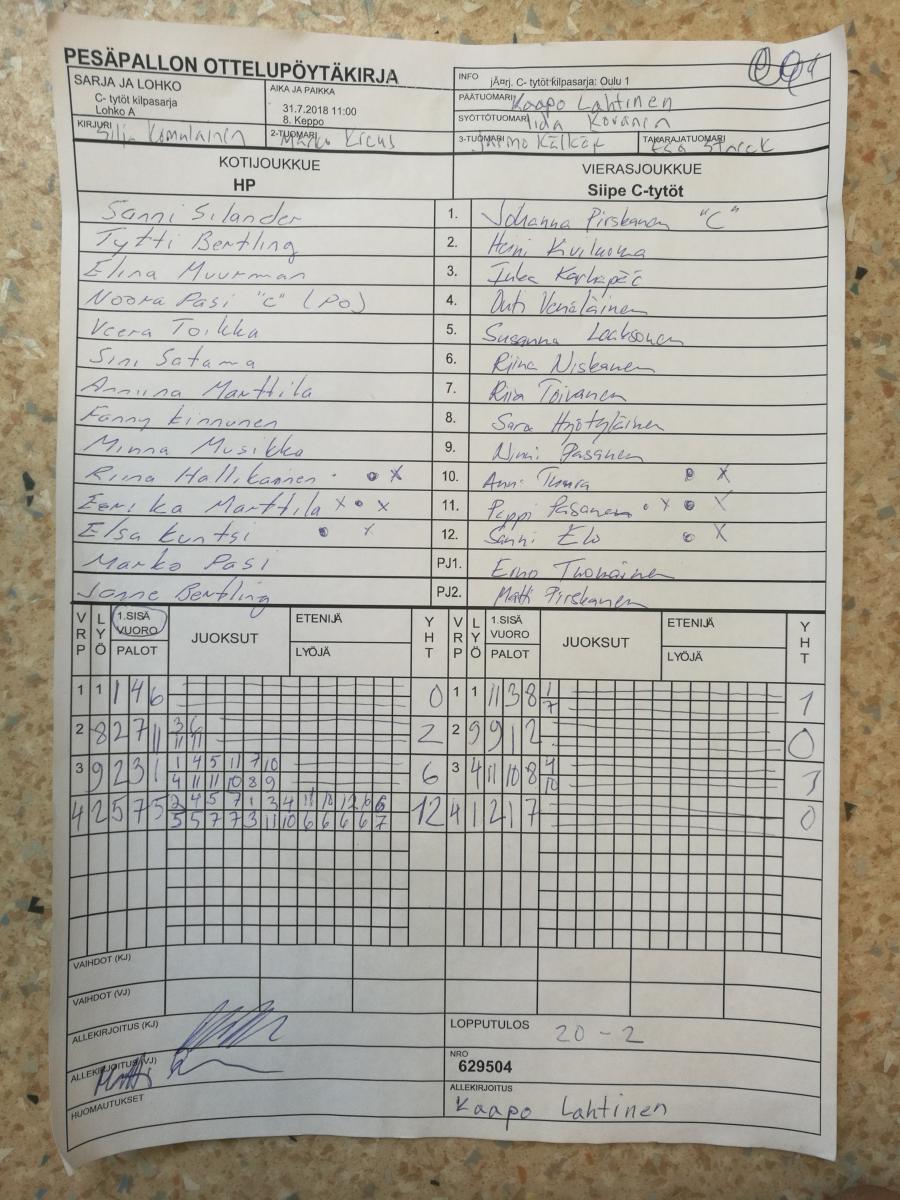 PESÄPALLON OTTELUPÖYTÄKIRJA
SARJA JA LOHKO
C- tytöt kilpasarja
Lohko A
AIKA JA PAIKKA
31.7.2018 11:00
8. Keppo
INFO
jÄ¤rj. C- tytöt kilpasarja: Oulu 1
PÄÄTUOMARI Kaapo Lahtinen
SYÖTTÖTUOMARI Iida Kovanen
KIRJURI Silja Komulainen
2-TUOMARI Marko
3-TUOMARI Jarmo
TAKARAJATUOMARI Esa
KOTIJOUKKUE
HP
VIERASJOUKKUE
Siipe C-tytöt
Sanni Silander 1. Johanna Pirskanen "C"
Tytti Bertling 2. Heini Kiviluoma
Elina Muurman 3. Karhapää
Noora Pasi "C" (PO) 4. Outi Venäläinen
Veera Toikka 5. Susanna Laaksonen
Sini Satama 6. Riina Niskanen
Anniina Marttila 7. Riia Toivanen
Fanny Kinnunen 8. Sara Hyötyläinen
Minna Musikka 9. Ninni Pasanen
Riina Hallikainen 10. Anni
Eerika Marttila 11. Peppi Pasanen
Elsa Kuntsi 12. Sanni Elo
Marko Pasi PJ1. Erno Tuomainen
Janne Bertling PJ2. Matti Pirskanen
VRP LYÖ 1.SISÄ VUORO PALOT JUOKSUT ETENIJÄ LYÖJÄ YHT VRP LYÖ 1.SISÄ VUORO PALOT JUOKSUT ETENIJÄ LYÖJÄ YHT
1 1 1 4 6 0 1 1 11 3 8 1 1
7
2 8 2 7 11 3 6 2 2 9 9 1 2 0
11 11
3 9 2 3 1 1 4 5 11 7 10 6 3 4 11 10 8 4
4 11 11 10 8 9 10
4 2 5 7 5 2 4 5 7 1 3 4 11 10 12 10 6 12 4 1 2 1 7 0
5 5 7 7 3 11 10 6 6 6 6 7
VAIHDOT (KJ)
VAIHDOT (VJ)
ALLEKIRJOITUS (KJ)
LOPPUTULOS 20 - 2
ALLEKIRJOITUS (VJ) Matti
NRO
629504
HUOMAUTUKSET
ALLEKIRJOITUS
Kaapo Lahtinen